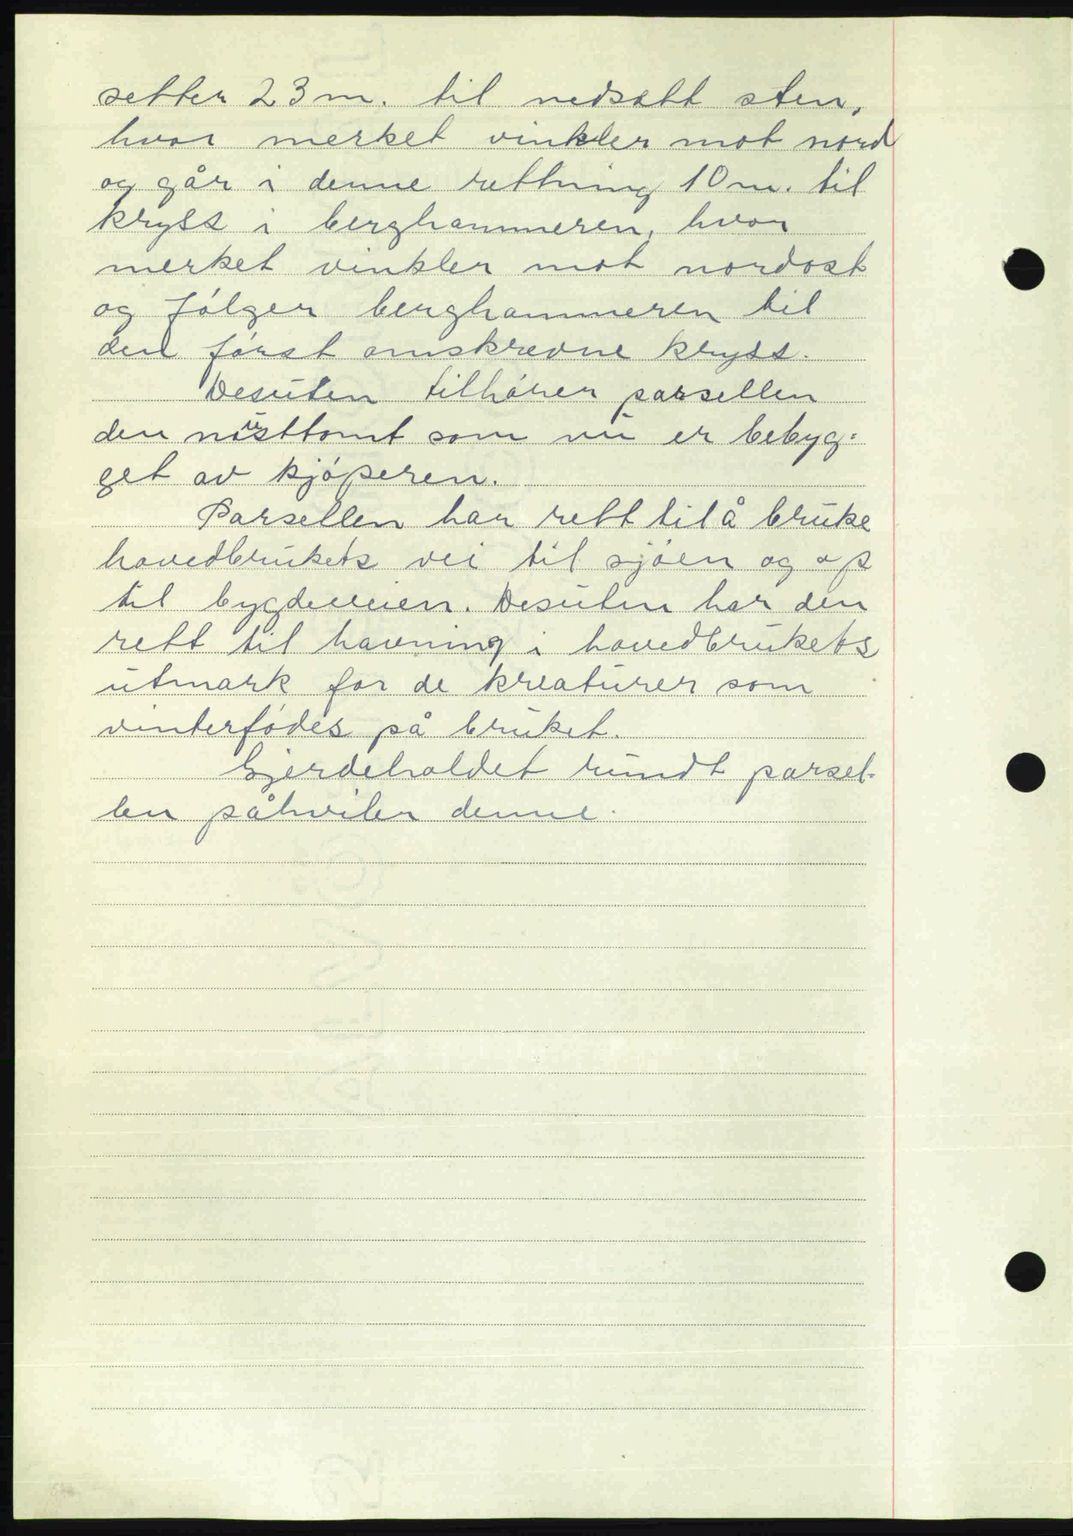 setter 23 m. til nedsatt sten,
hvor merket vinkler mot nord
og går i denne rettning 10 m. til
kryss i berghammeren, hvor
merket vinkler mot nordost
og følger berghammeren til
den først omskrevne kryss.
Desuten tilhører parsellen
den nøsttomt som nu er bebyg-
get av kjøperen.
Parsellen har rett til å bruke
hovedbrukets vei til sjøen og op
til bygdeveien. Desuten har den
rett til havning i hovedbrukets
utmark for de kreaturer som
vinterfødes på bruket.
Gjerdeholdet rundt parsel-
len påhviler denne.